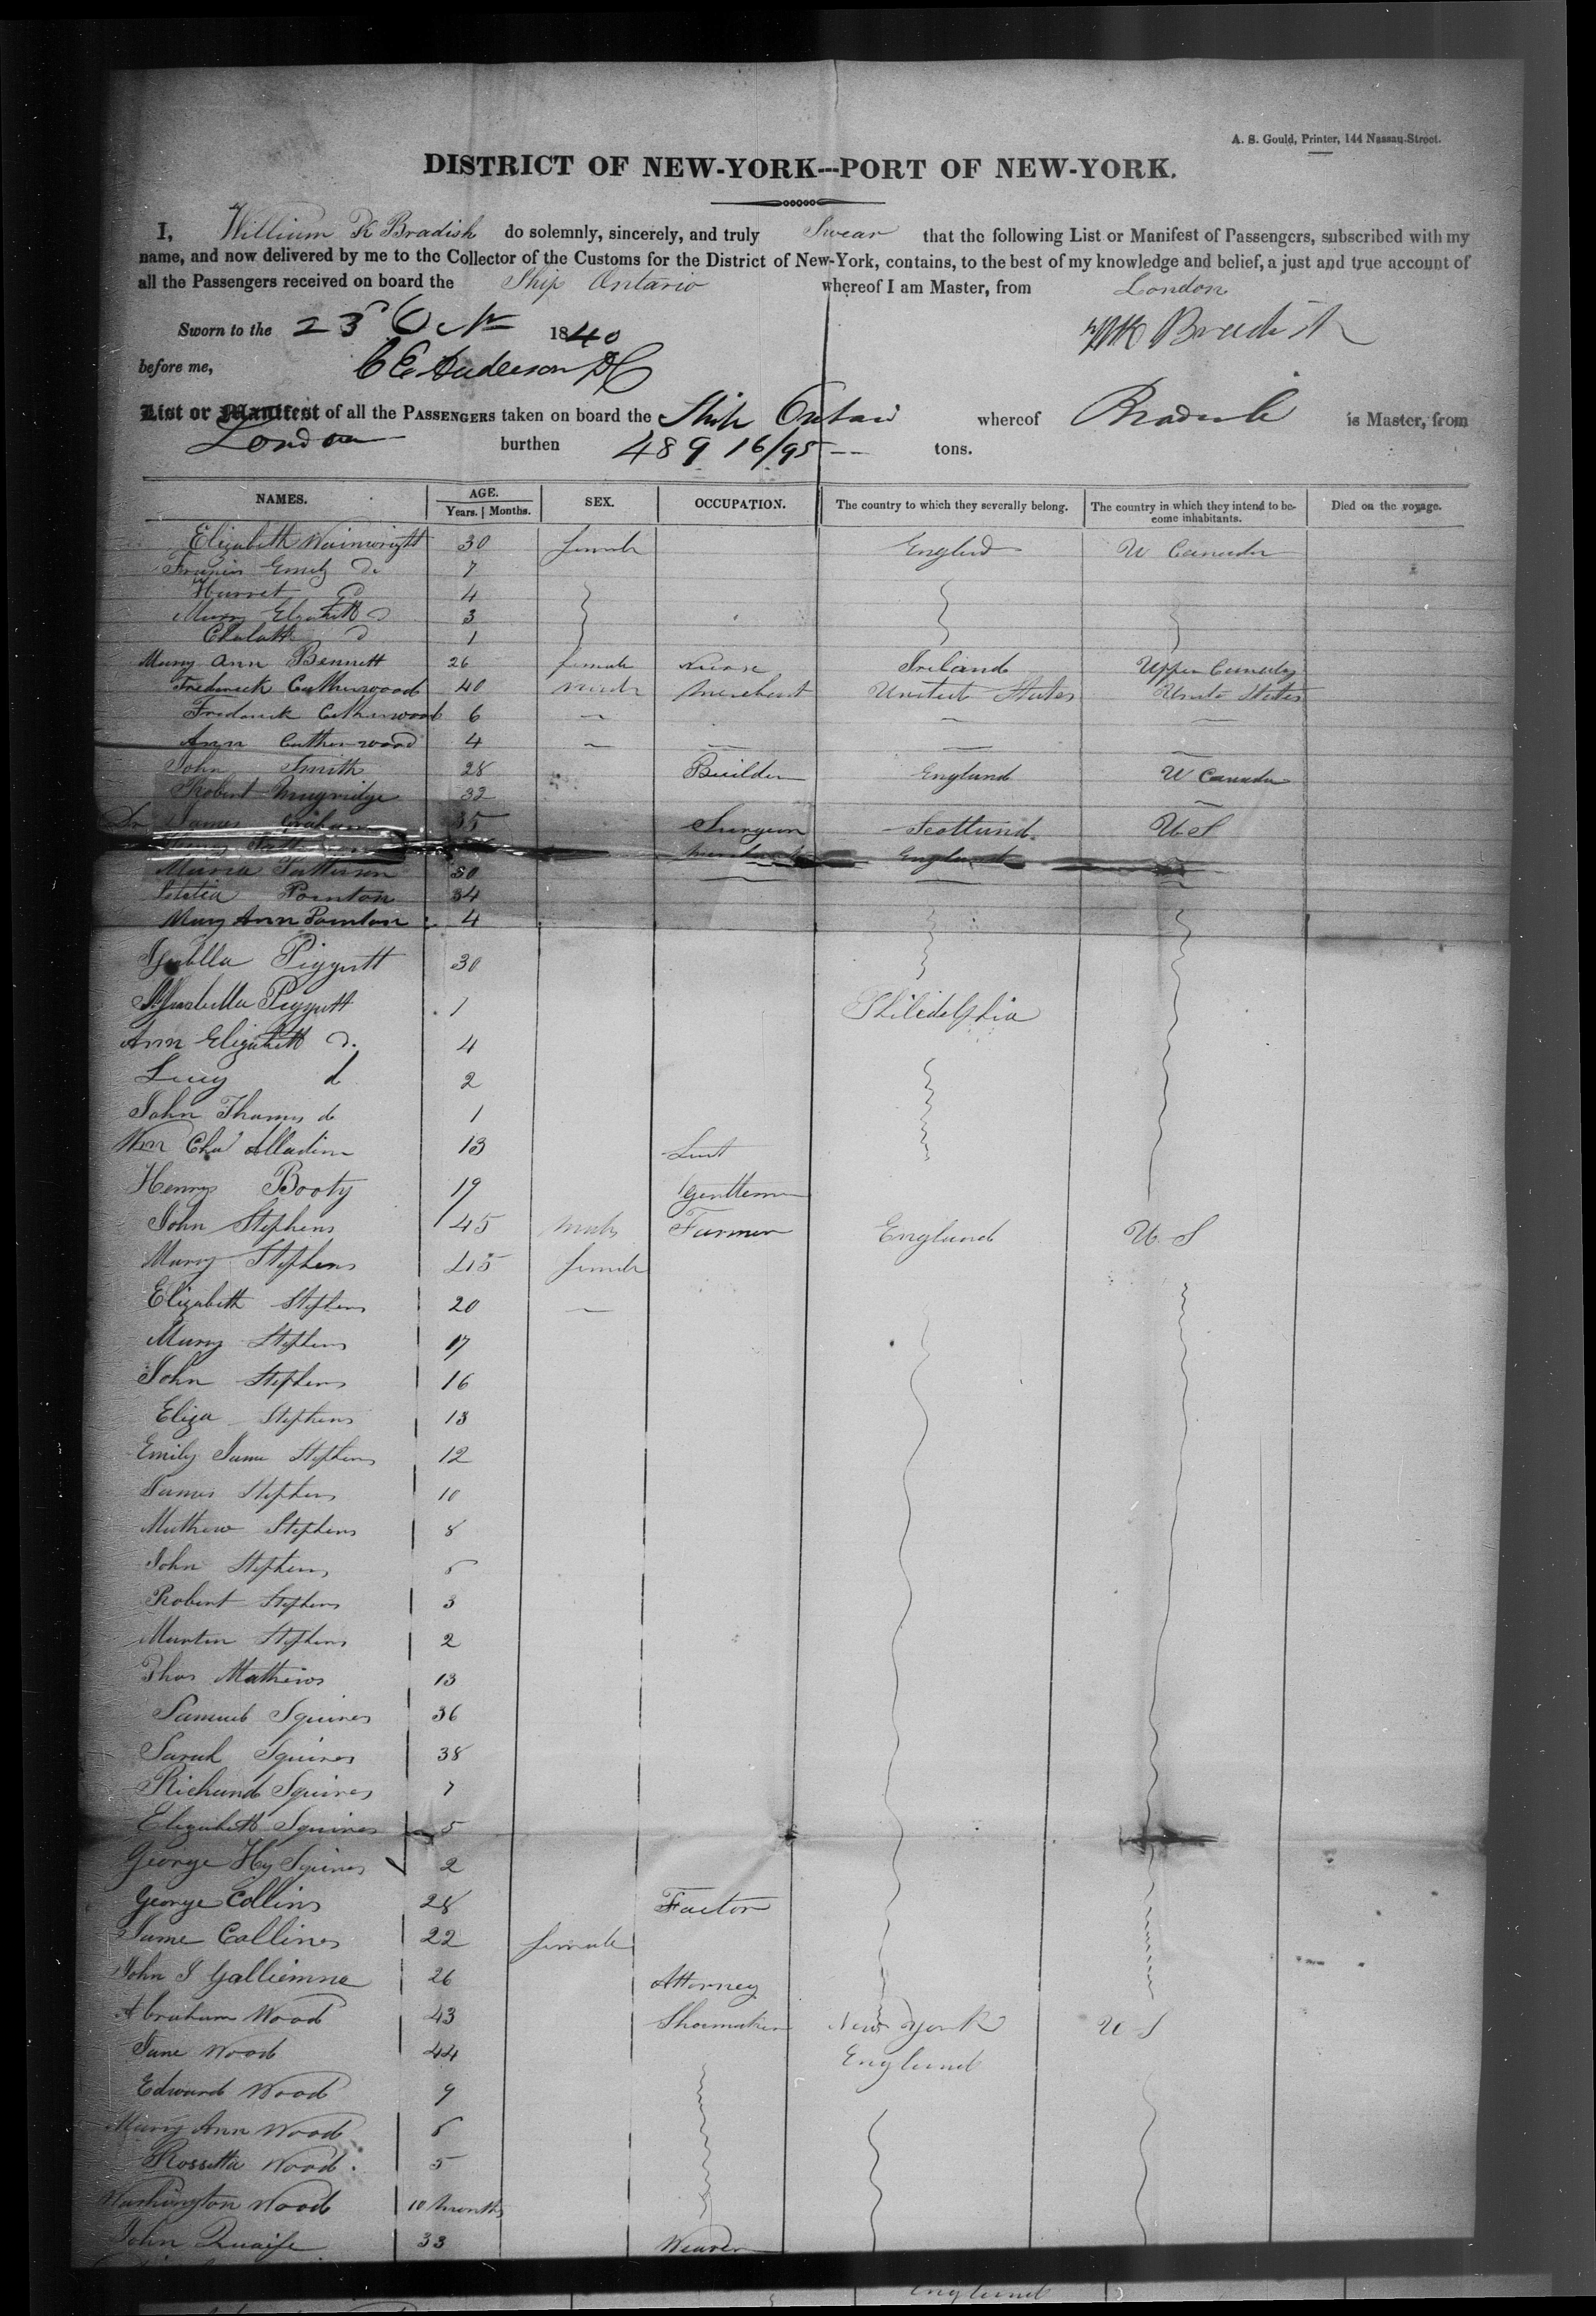 A. S. Gould, Printer, 144 Nassau-Street.
DISTRICT OF NEW-YORK---PORT OF NEW-YORK.
I, William K Bradish do solemnly, sincerely, and truly Swear that the following List or Manifest of Passengers, subscribed with my
name, and now delivered by me to the Collector of the Customs for the District of New-York, contains, to the best of my knowledge and belief, a just and true account of
all the Passengers received on board the Ship Ontario whereof I am Master, from London
Sworn to the 23d Octr 1840 WK Bradish
before me, C E Anderson DC
List or Manifest of all the PASSENGERS taken on board the Ship Ontario whereof Bradish is Master, from
London burthen 489 16/95 tons.
NAMES. AGE. SEX. OCCUPATION. The country to which they severally belong. The country in which they intend to be- Died on the voyage.
Years. | Months. come inhabitants.
Elizabeth Wainwright 30 female England U Canada
Francis Emily Do 7
Harriet Do 4
Mary Elizabeth D 3
D 1
Mary Ann Bennett 26 female Nurse Ireland Upper Canada
Frederick Catherwood 40 male Merchant United States United States
Frederick Catherwood 6
Ann Catherwood 4
John Smith 28 Builder England U Canada
Robert Mugridge 32
Dr James Graham 35 Surgeon Scotland U S
England
Maria Patterson 30
Letitia Pointon 34
Mary Ann Pointon 4
Piggott 30
Piggott 1 Philidelphia
Ann Elizabeth D. 4
Lucy d 2
John Thomas do 1
Wm Cha 13 Lieut
Henry Booty 19 Gentleman
John Stephens 45 male Farmer England U S
Mary Stephens 45 female
Elizabeth Stephens 20
Mary Stephens 17
John Stephens 16
Eliza Stephens 13
Emily Jane Stephens 12
James Stephens 10
Mathew Stephens 8
John Stephens 5
Robert Stephens 3
Martin Stephens 2
Thos Mathews 13
Samuel Squires 36
Sarah Squires 38
Richard Squires 7
Elizabeth Squires 5
George Hy Squires 2
George Collins 28 Factor
Jane Collins 22 female
John J Galliemne 26 Attorney
Abraham Wood 43 Shoemaker New York U S
Jane Wood 44 England
Edward Wood 9
Mary Ann Wood 6
Rossetta Wood. 5
Washington Wood 10 months
John Quaife 33 Weaver
England